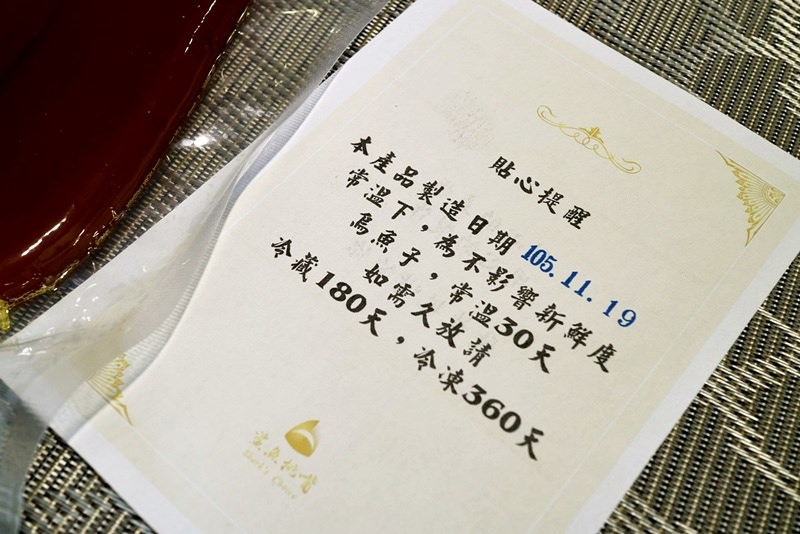 貼心提醒
本產品製造日期 105.11.19
常溫下，為不影響新鮮度
烏魚子，常溫30天
如需久放請
冷藏180天，冷凍360天